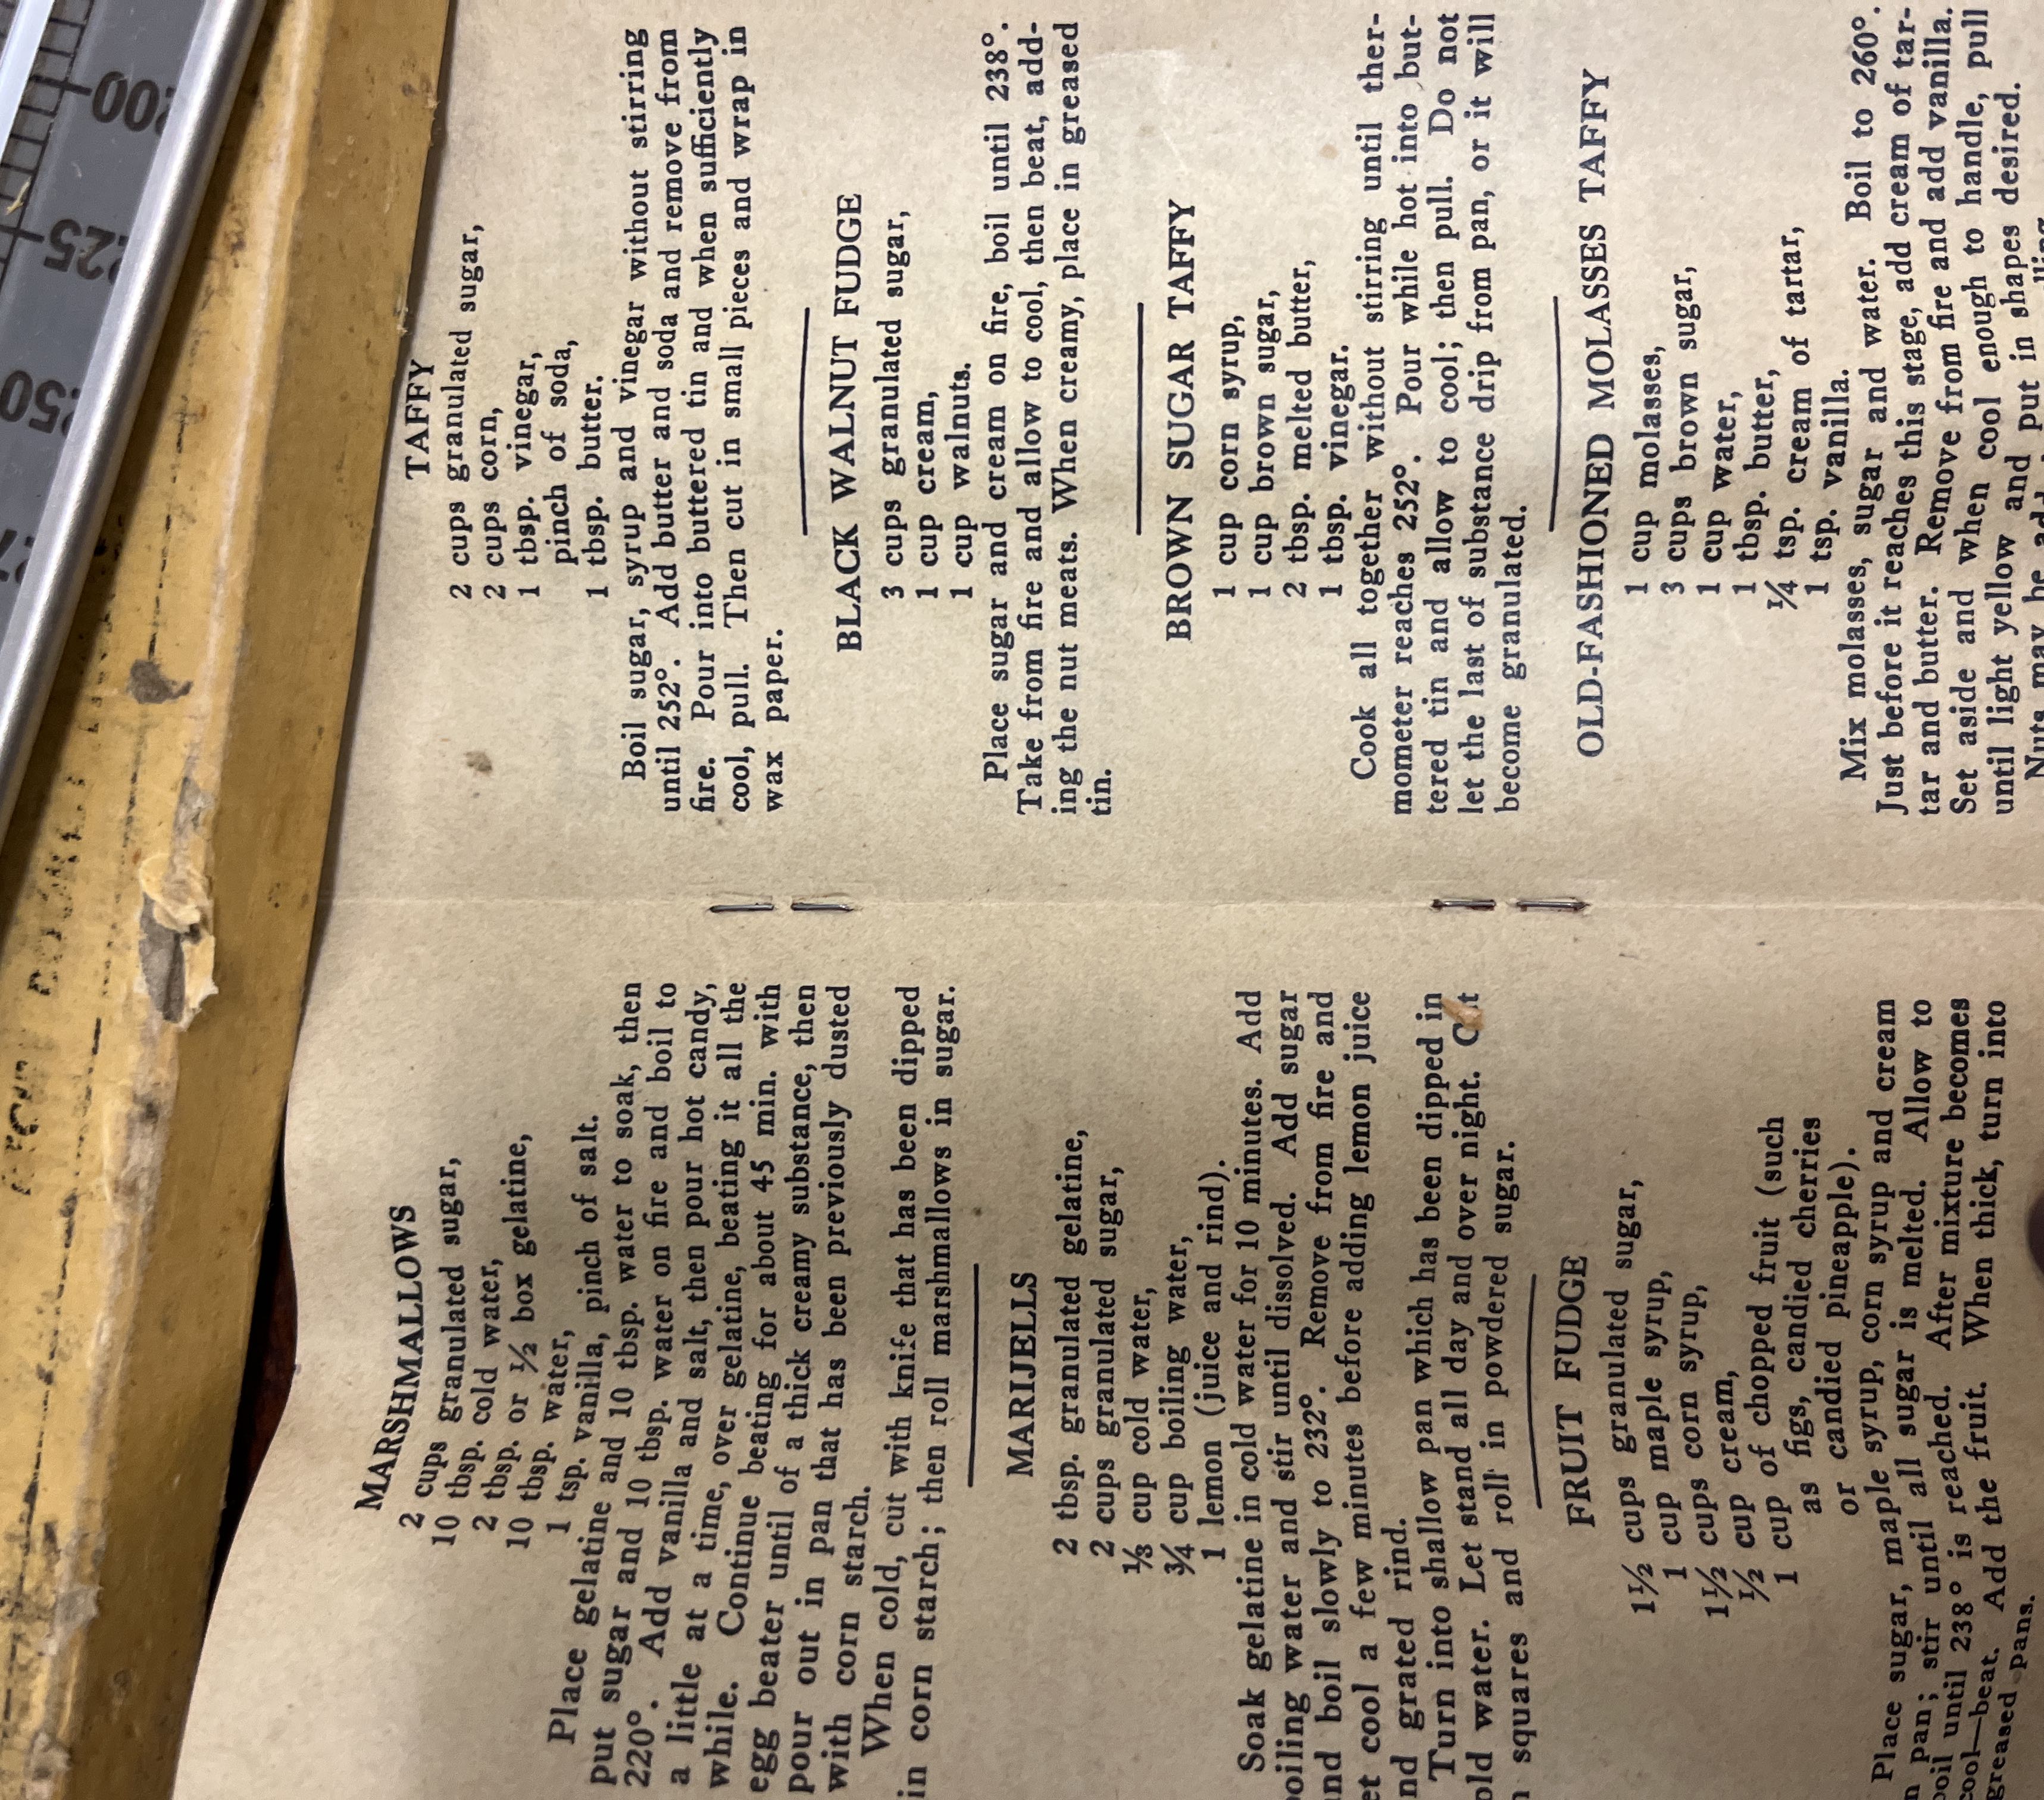 MARSHMALLOWS
2 cups granulated sugar,
10 tbsp. cold water,
2 tbsp. or ½ box gelatine,
10 tbsp. water,
1 tsp. vanilla, pinch of salt.
Place gelatine and 10 tbsp. water to soak, then
put sugar and 10 tbsp. water on fire and boil to
220°. Add vanilla and salt, then pour hot candy,
a little at a time, over gelatine, beating it all the
while. Continue beating for about 45 min. with
egg beater until of a thick creamy substance, then
pour out in pan that has been previously dusted
with corn starch.
When cold, cut with knife that has been dipped
in corn starch; then roll marshmallows in sugar.
MARIJELLS
2 tbsp. granulated gelatine,
2 cups granulated sugar,
⅓ cup cold water,
¾ cup boiling water,
1 lemon (juice and rind).
Soak gelatine in cold water for 10 minutes. Add
boiling water and stir until dissolved. Add sugar
and boil slowly to 232°. Remove from fire and
let cool a few minutes before adding lemon juice
and grated rind.
Turn into shallow pan which has been dipped in
cold water. Let stand all day and over night. Cut
in squares and roll in powdered sugar.
FRUIT FUDGE
1½ cups granulated sugar,
1 cup maple syrup,
1½ cups corn syrup,
½ cup cream,
1 cup of chopped fruit (such
as figs, candied cherries
or candied pineapple).
Place sugar, maple syrup, corn syrup and cream
in pan; stir until all sugar is melted. Allow to
boil until 238° is reached. After mixture becomes
cool—beat. Add the fruit. When thick, turn into
greased pans.
TAFFY
2 cups granulated sugar,
2 cups corn,
1 tbsp. vinegar,
pinch of soda,
1 tbsp. butter.
Boil sugar, syrup and vinegar without stirring
until 252°. Add butter and soda and remove from
fire. Pour into buttered tin and when sufficiently
cool, pull. Then cut in small pieces and wrap in
wax paper.
BLACK WALNUT FUDGE
3 cups granulated sugar,
1 cup cream,
1 cup walnuts.
Place sugar and cream on fire, boil until 238°.
Take from fire and allow to cool, then beat, add-
ing the nut meats. When creamy, place in greased
tin.
BROWN SUGAR TAFFY
1 cup corn syrup,
1 cup brown sugar,
2 tbsp. melted butter,
1 tbsp. vinegar.
Cook all together without stirring until ther-
mometer reaches 252°. Pour while hot into but-
tered tin and allow to cool; then pull. Do not
let the last of substance drip from pan, or it will
become granulated.
OLD-FASHIONED MOLASSES TAFFY
1 cup molasses,
3 cups brown sugar,
1 cup water,
1 tbsp. butter,
¼ tsp. cream of tartar,
1 tsp. vanilla.
Mix molasses, sugar and water. Boil to 260°.
Just before it reaches this stage, add cream of tar-
tar and butter. Remove from fire and add vanilla.
Set aside and when cool enough to handle, pull
until light yellow and put in shapes desired.
Nuts may be
200
225
250